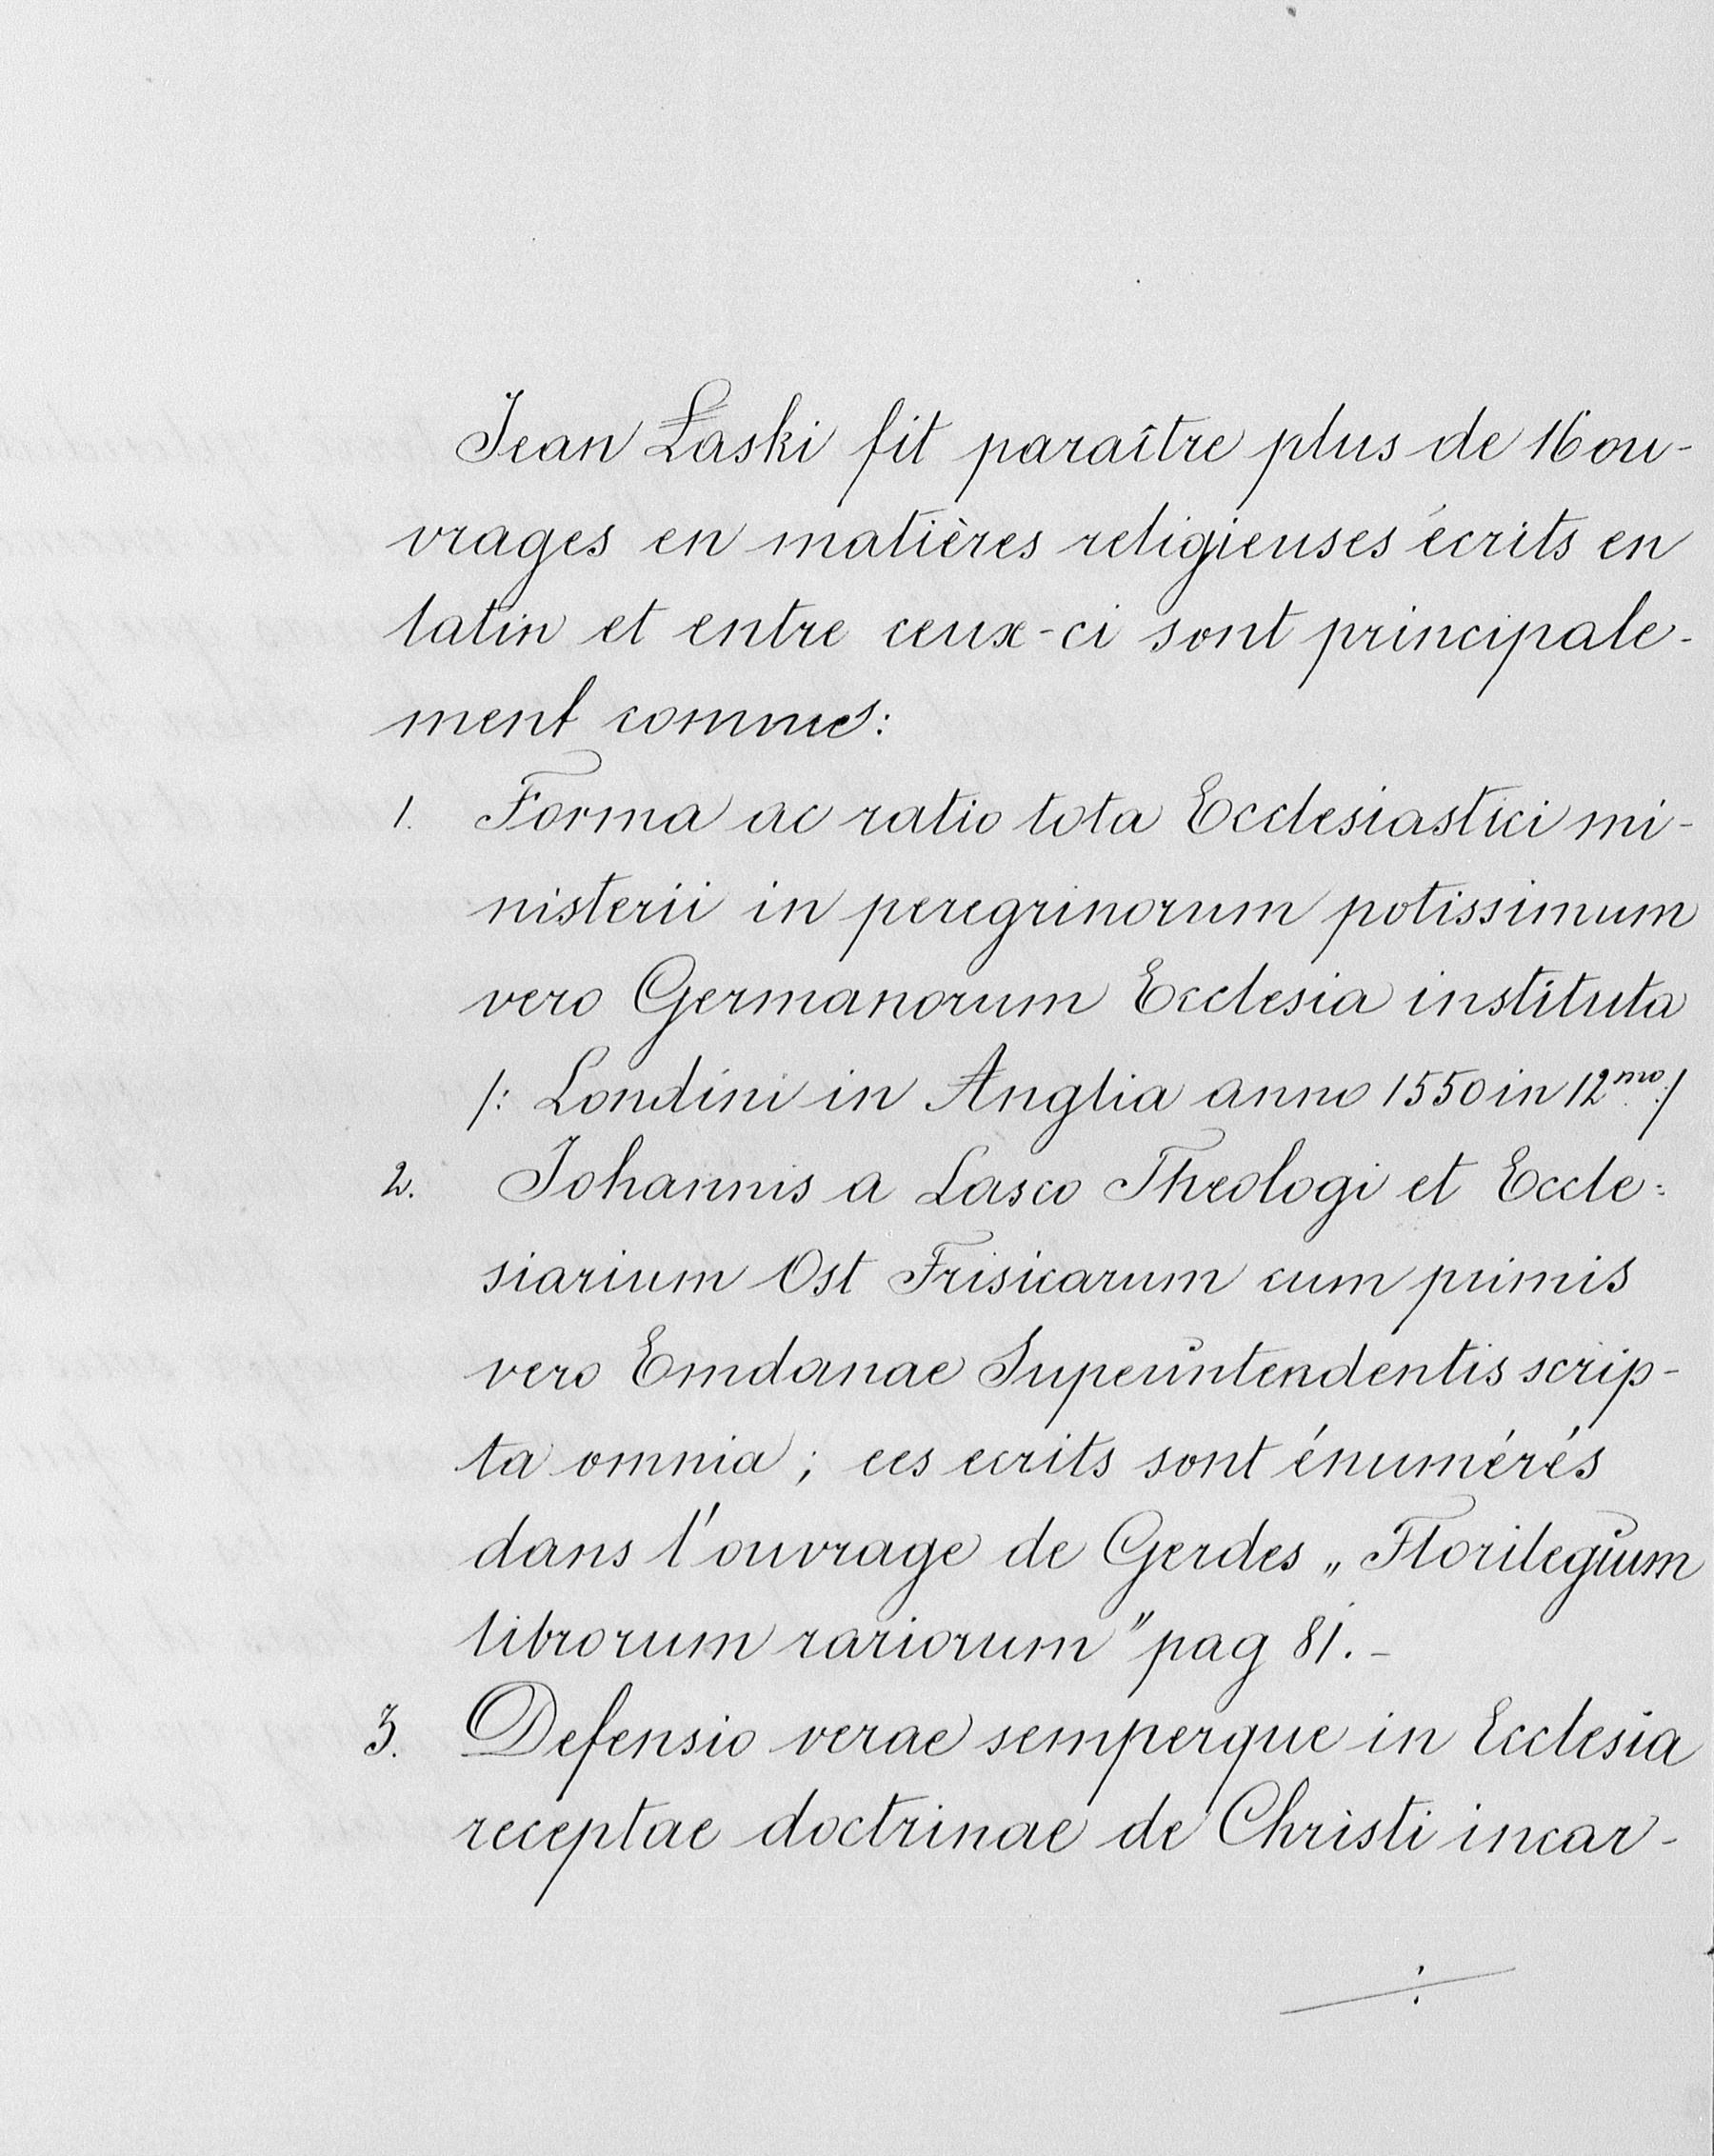 Jean Łaski fit paraître plus de 16 ou-
vrages en matières religieuses écrits en
latin et entre ceux-ci sont principale-
ment connues:
1. Forma ac ratio tota Ecclesiastici mi-
nisterii in peregrinorum potissimum
vero Germanorum Ecclesia instituta
/: Londini in Anglia anno 1550 in 12mo :/
2. Johannis a Lasco Theologi et Eccle=
siarium Ost Frisicarum cum primis
vero Emdanae Superintendentis scrip-
ta omnia; ces ecrits sont énumérés
dans l'ouvrage de Gerdes „Florilegium
librorum rariorum" pag 81.-
3. Defensio verae semperque in Ecclesia
receptae doctrinae de Christi incar-